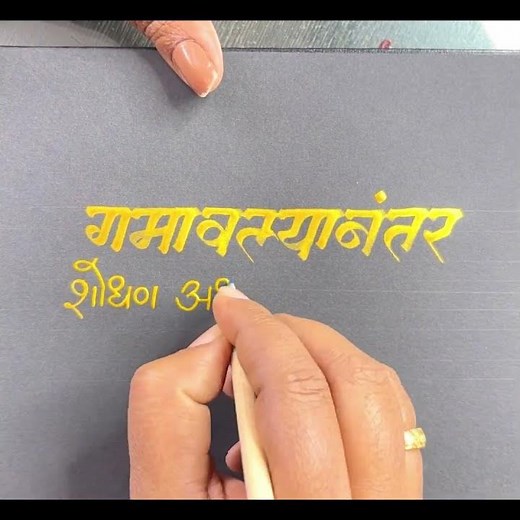 गमावल्यानंतर
शोधण